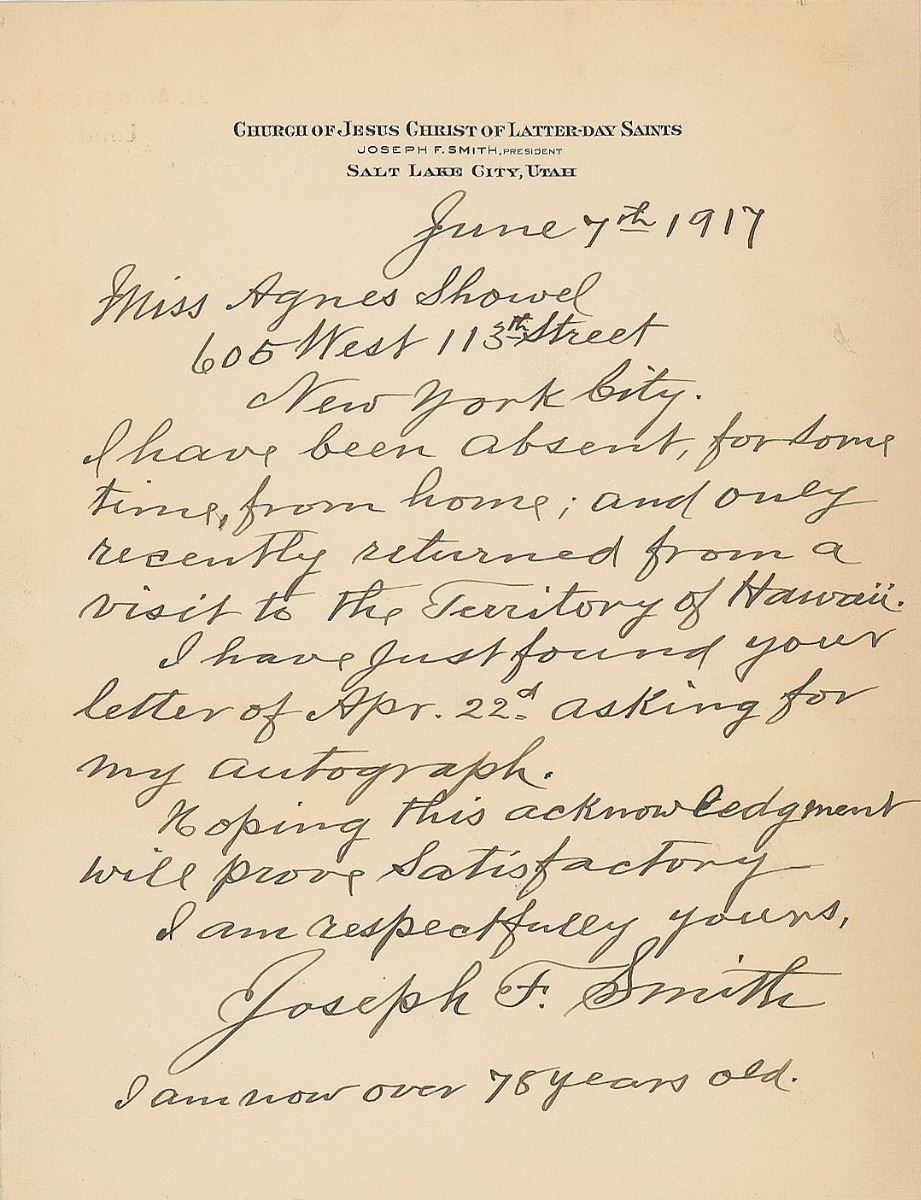 CHURCH OF JESUS CHRIST OF LATTER-DAY SAINTS
JOSEPH F. SMITH, PRESIDENT
SALT LAKE CITY, UTAH
June 7th 1917
Miss Agnes Showel
605 West 113th Street
New York City.
I have been absent, for some
time, from home; and only
recently returned from a
visit to the Territory of Hawaii.
I have just found your
letter of Apr. 22d. asking for
my autograph.
Hoping this acknowledgment
will prove satisfactory
I am respectfully yours,
Joseph F. Smith
I am now over 78 years old.